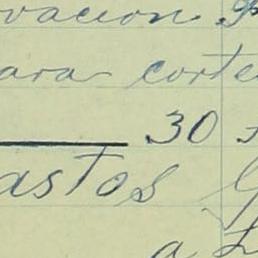 vacion
para corte
30
astos
a